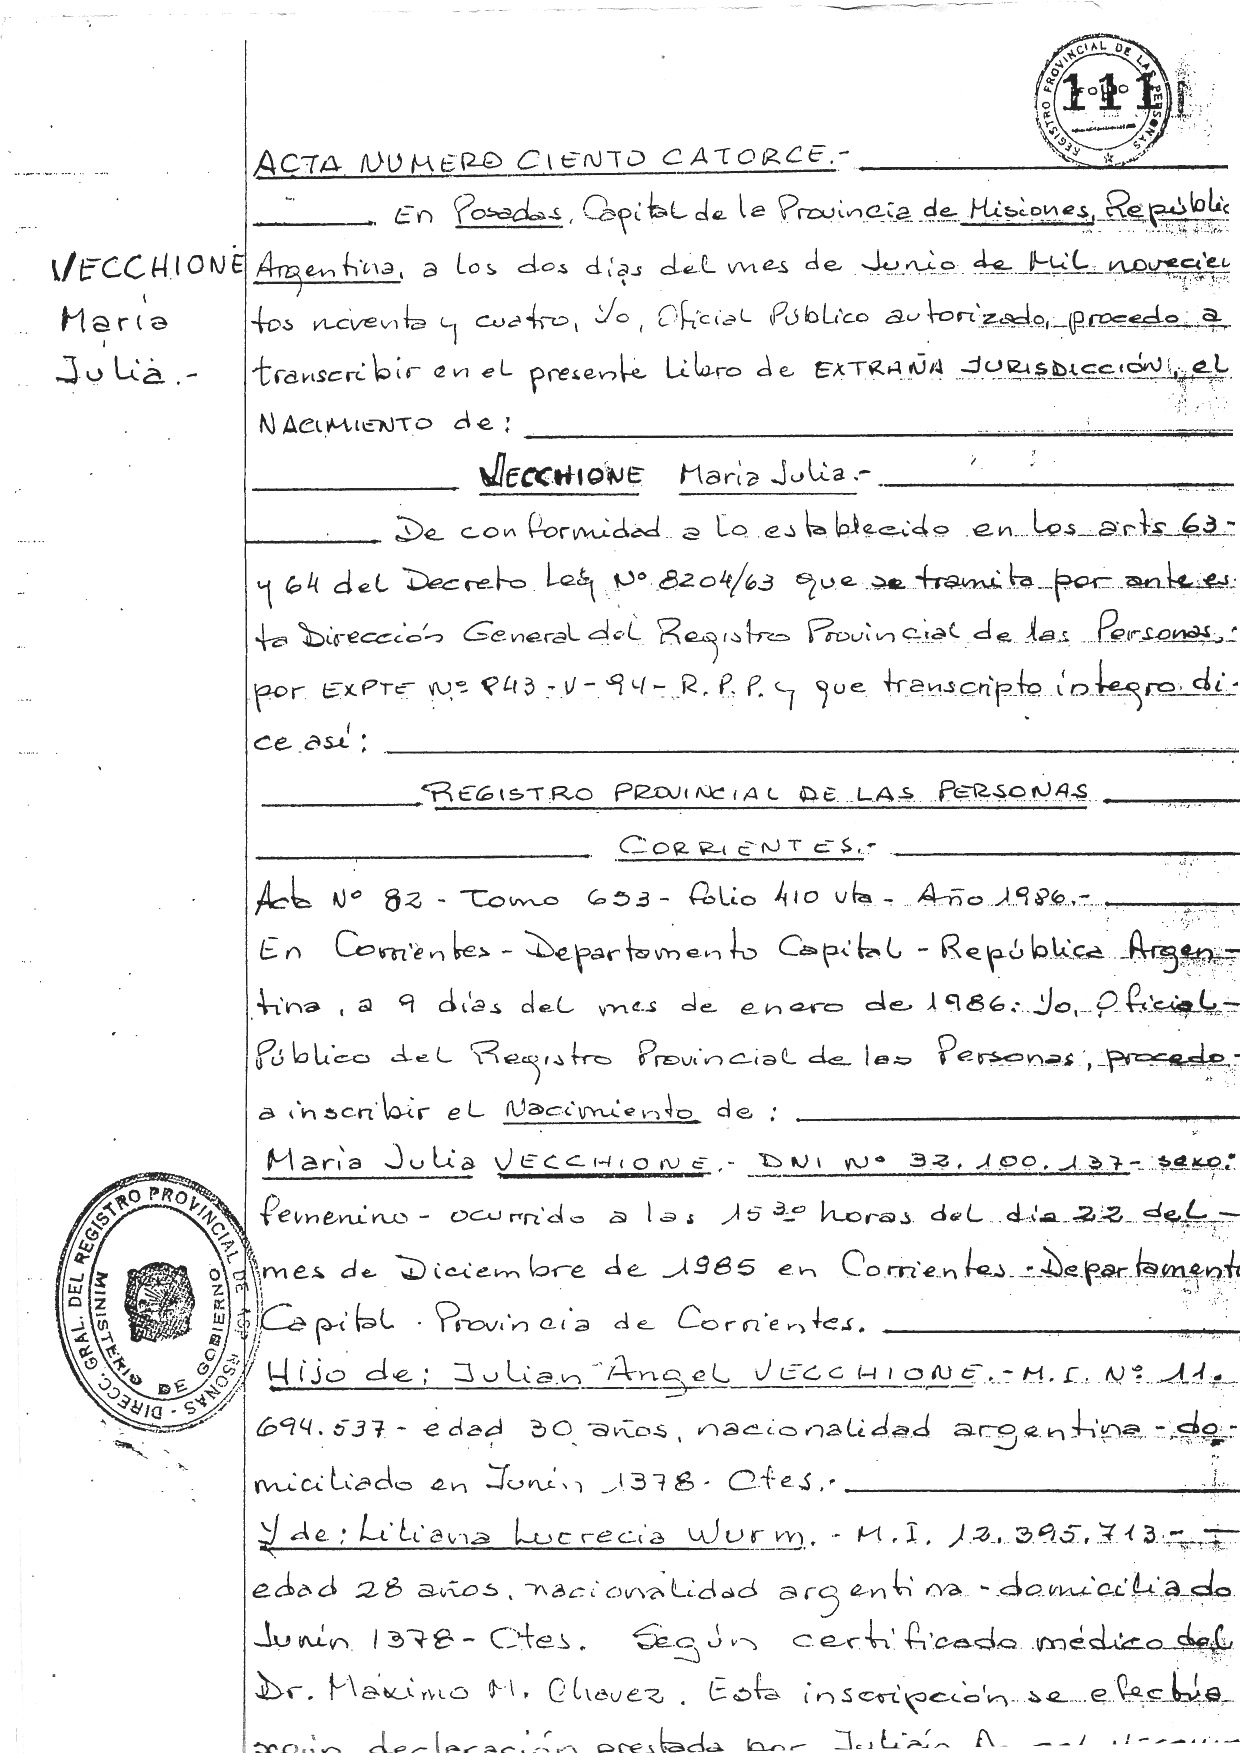 REGISTRO PROVINCIAL DE LAS PERSONAS
FOLIO
111
ACTA NUMERO CIENTO CATORCE.-
En Posadas, Capital de la Provincia de Misiones, Repúblic
VECCHIONE
María
Julia.-
Argentina, a los dos días del mes de Junio de Mil novecien
tos noventa y cuatro, Yo, Oficial Público autorizado, procedo a
transcribir en el presente Libro de EXTRAÑA JURISDICCIÓN, el
NACIMIENTO de:
VECCHIONE María Julia.-
De conformidad a lo establecido en los arts 63-
y 64 del Decreto Ley Nº 8204/63 que se tramita por ante es
ta Dirección General del Registro Provincial de las Personas,-
por EXPTE Nº 843-V-94-R.P.P. y que transcripto íntegro di-
ce así:
REGISTRO PROVINCIAL DE LAS PERSONAS
CORRIENTES.-
Acta Nº 82 - Tomo 653 - folio 410 vta - Año 1986.-
En Corrientes - Departamento Capital - República Argen-
tina, a 9 días del mes de enero de 1986: Yo, Oficial-
Público del Registro Provincial de las Personas, procedo-
a inscribir el Nacimiento de:
María Julia VECCHIONE.- DNI Nº 32.100.137- sexo:
femenino - ocurrido a las 15 30 horas del día 22 del-
mes de Diciembre de 1985 en Corrientes - Departamento
Capital - Provincia de Corrientes.
Hijo de: Julian Angel VECCHIONE.- M.I. Nº 11.
694.537 - edad 30 años, nacionalidad argentina - do-
miciliado en Junín 1378 - Ctes.-
Y de: Liliana Lucrecia Wurm. - M.I. 12.395.713.-
edad 28 años, nacionalidad argentina - domiciliado
Junín 1378 - Ctes. Según certificado médico del
Dr. Máximo M. Chavez. Esta inscripción se efectúa
según declaración prestada por Julián
DIRECC. GRAL. DEL REGISTRO PROVINCIAL DE
MINISTERIO DE GOBIERNO